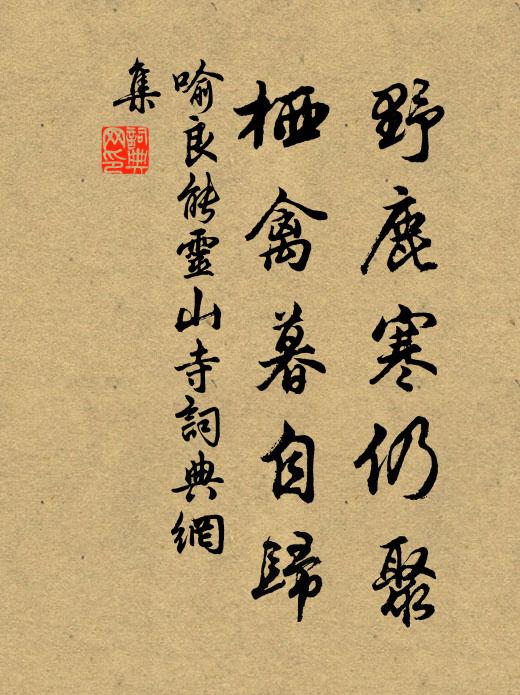 野鹿寒仍聚
栖禽暮自歸
喻良能靈山寺詞典網
集
詞典
网印